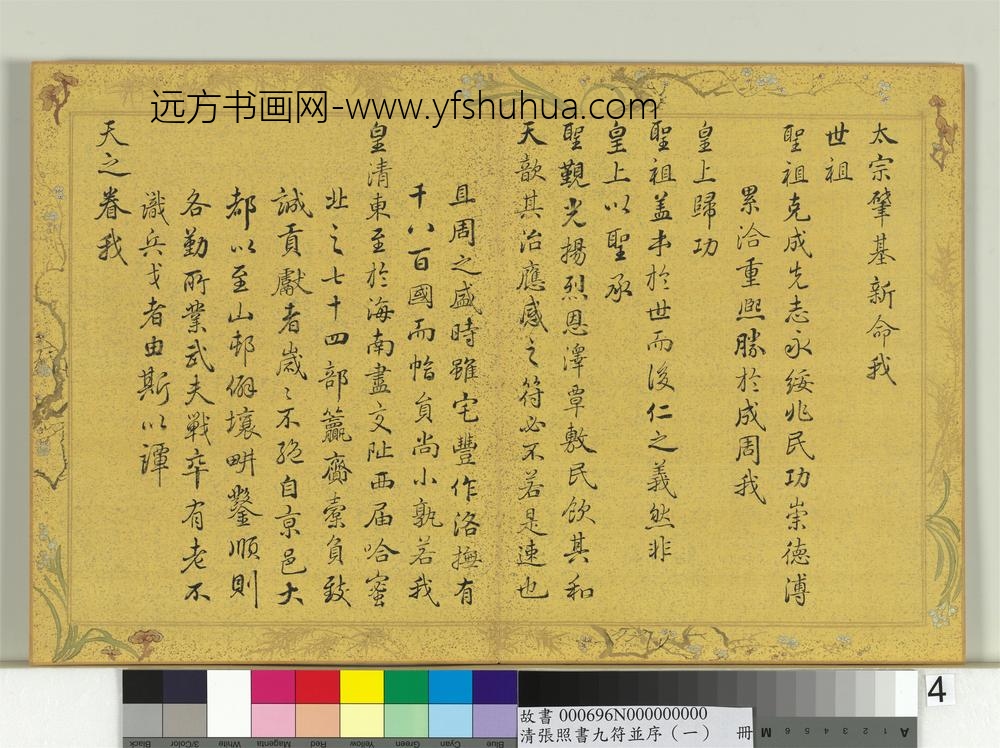 远方书画网-www.yfshuhua.com
太宗肇基新命我
世祖
聖祖克成先志永綏兆民功崇德溥
累洽重熙勝於成周我
皇上歸功
聖祖盖本於世而後仁之義然非
皇上以聖承
聖覲光揚烈恩澤覃敷民飲其和
天歆其治應感之符必不若是速也
且周之盛時雖宅豐作洛撫有
千八百國而幅員尚小孰若我
皇清東至於海南盡交阯西届哈蜜
北之七十四部籯齎橐負致
誠貢獻者歲々不絕自京邑大
都以至山邨僻壤畊鑿順則
各勤所業武夫戰卒有老不
識兵戈者由斯以譚
天之眷我
4
故書 000696N000000000
清張照書九符並序（一） 冊
Black
3/Color
White
Magenta
Red
Yellow
Green
Cyan
Blue
A 1 2 3 4 5 6 M